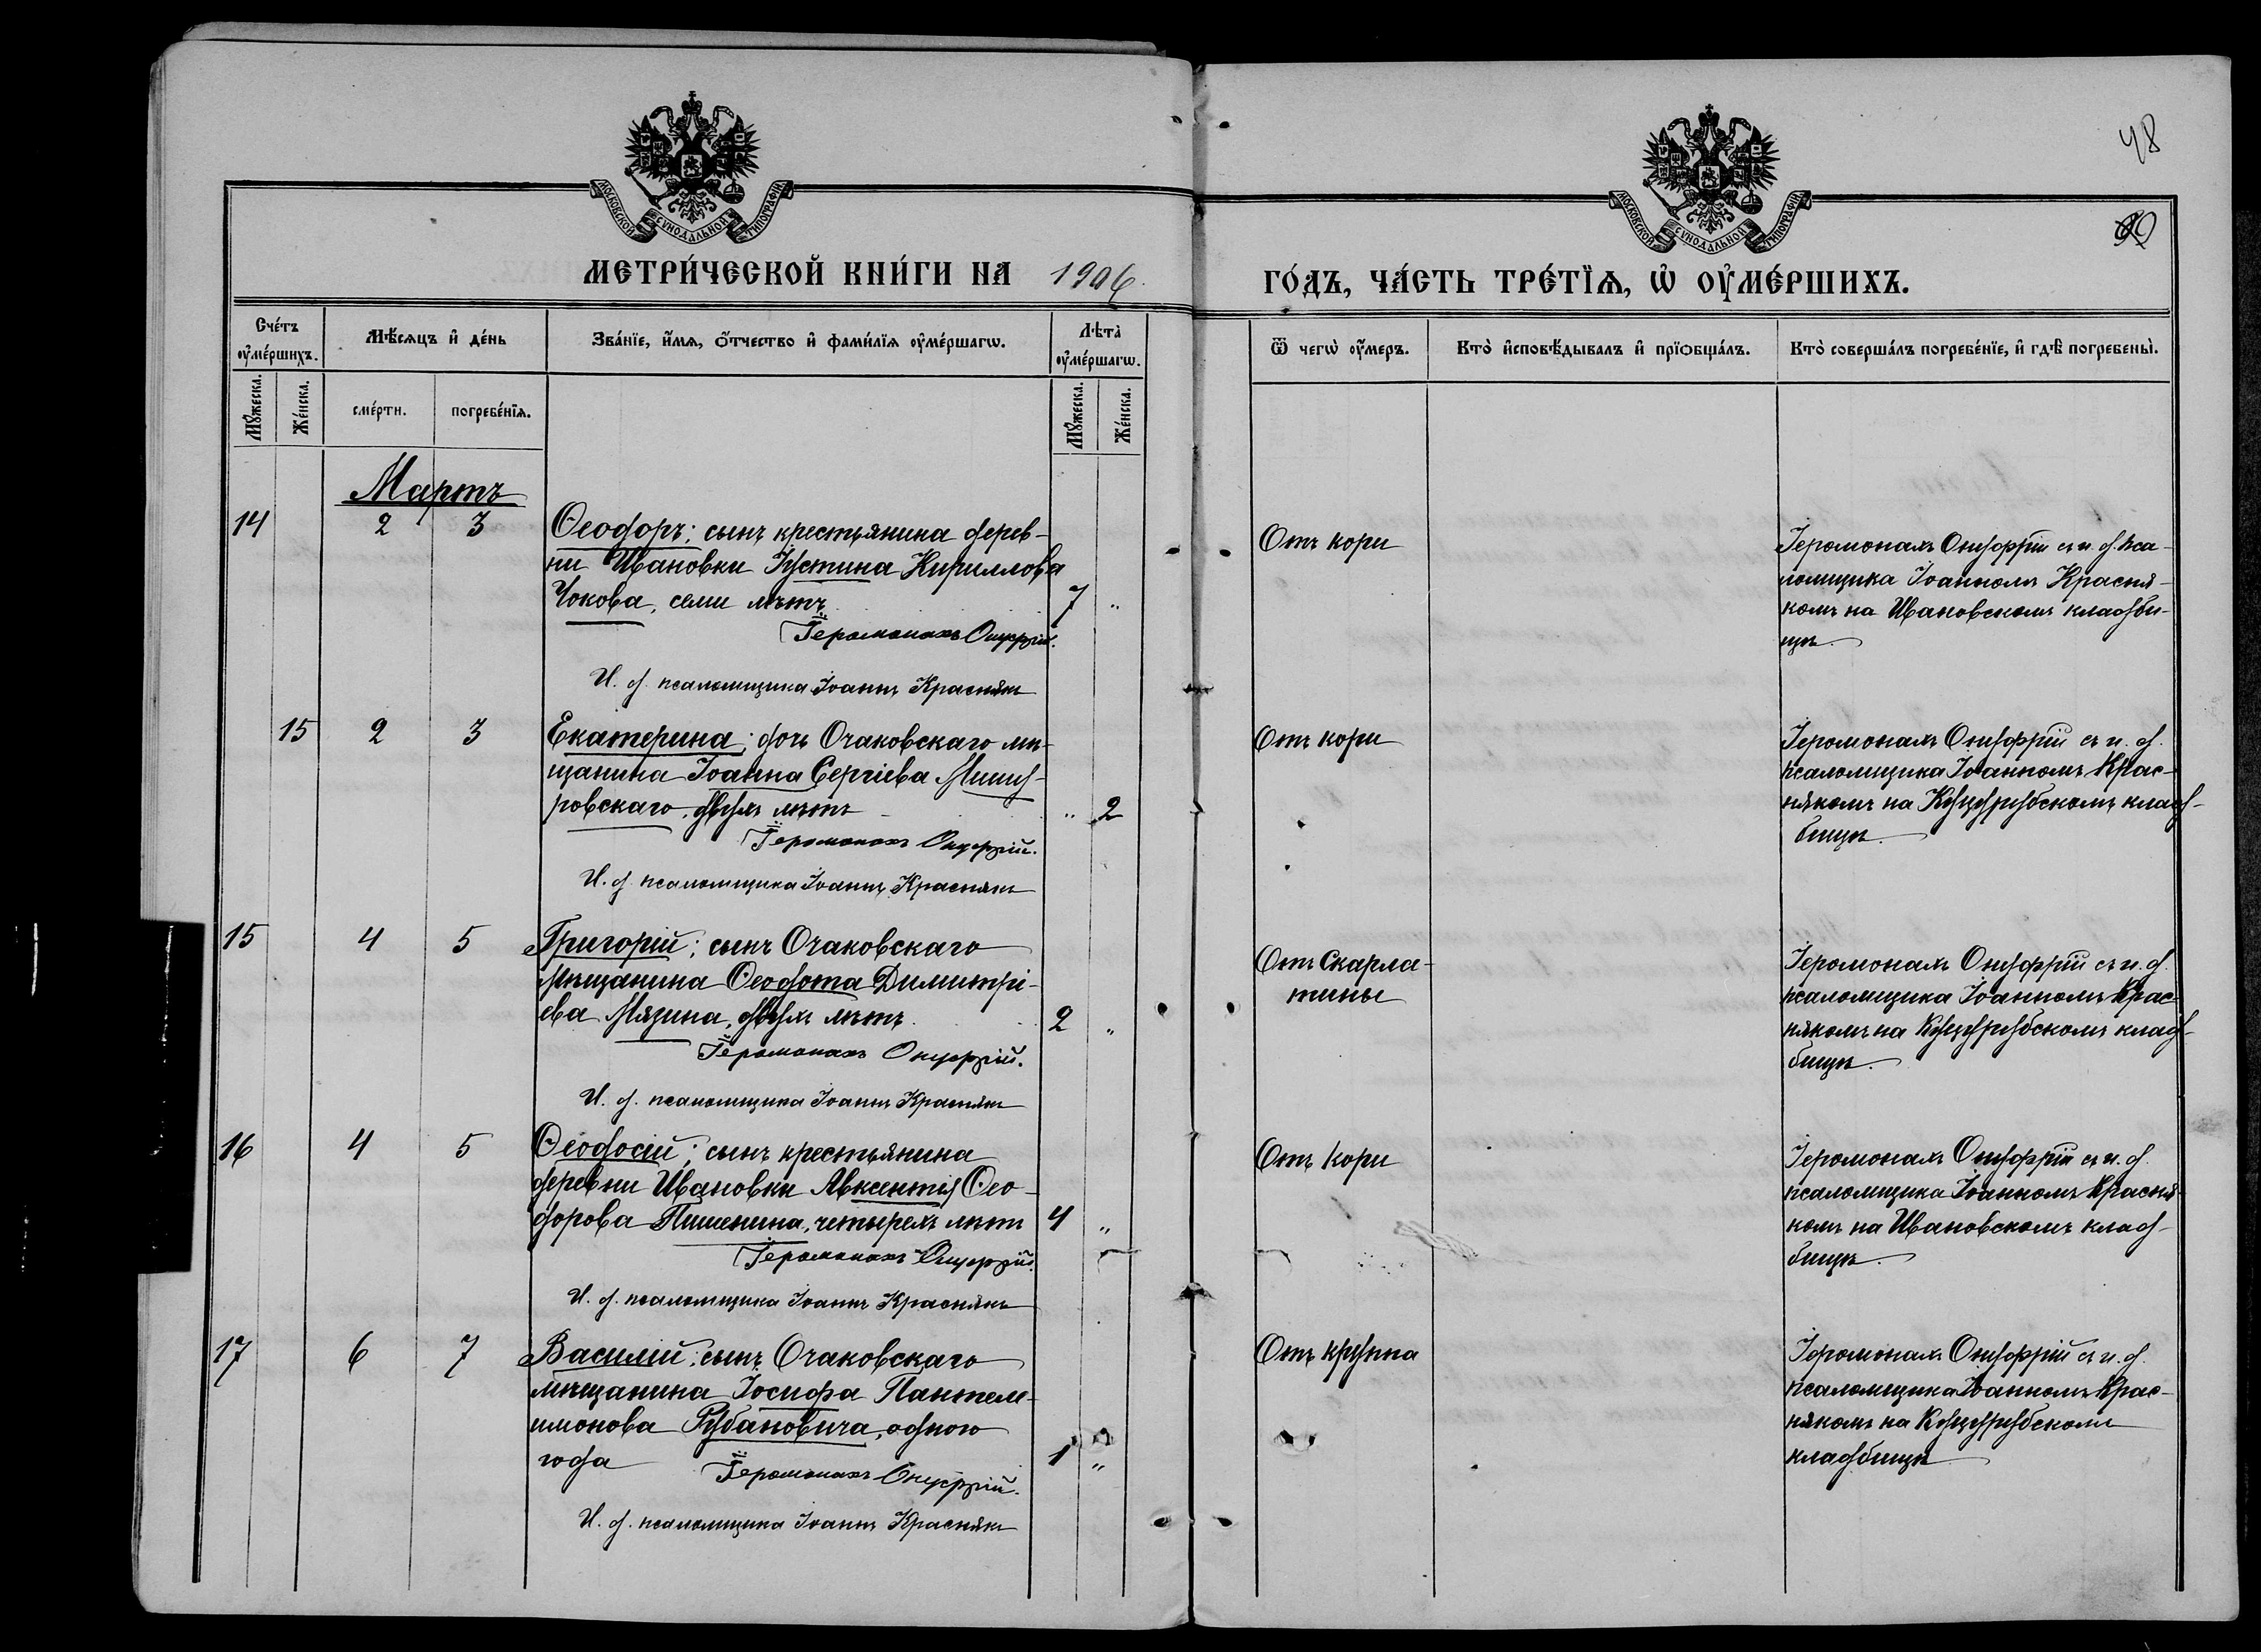 48
МОСКОВСКОЙ СУНОДАЛЬНОЙ ТИПОГРАФІИ
МОСКОВСКОЙ СУНОДАЛЬНОЙ ТИПОГРАФІИ
МЕТРИ́ЧЕСКОЙ КНИ́ГИ НА 1906.
ГО́ДЪ, ЧА́СТЬ ТРЕ́ТЇѦ, Ѡ҆ ОУ҆МЕ́РШИХЪ.
Сче́тъ оу҆ме́ршихъ.
Мѣ́сѧцъ и҆ де́нь
Зва́нїе, и҆́мѧ, о҆́тчество и҆ фами́лїѧ оу҆ме́ршагѡ.
Лѣта̀ оу҆ме́ршагѡ.
Ѿ чегѡ̀ оу҆́меръ.
Кто̀ и҆сповѣ́дывалъ и҆ прїѻбща́лъ.
Кто̀ соверша́лъ погребе́нїе, и҆ гдѣ̀ погребены̀.
Мꙋ́жеска.
Же́нска.
сме́рти.
погребе́нїѧ.
Мꙋ́жеска.
Же́нска.
Мартъ
14 2 3 Ѳеодоръ; сынъ крестьянина дерев-
ни Ивановки Іустина Кириллова
Чокова, семи лѣтъ 7 "
Іеромонахъ Онуфрій.
И. д. псаломщика Іоаннъ Краснякъ
Отъ кори
Іеромонахъ Онуфрій съ и. д. пса-
ломщика Іоанномъ Красня-
комъ на Ивановскомъ кладби-
щѣ.
15 2 3 Екатерина; дочь Очаковскаго мѣ-
щанина Іоанна Сергіева Мишу-
ровскаго, двухъ лѣтъ " 2
Іеромонахъ Онуфрій.
И. д. псаломщика Іоаннъ Краснякъ
Отъ кори
Іеромонахъ Онуфрій съ и. д.
псаломщика Іоанномъ Крас-
някомъ на Куцурубскомъ клад-
бищѣ.
15 4 5 Григорій; сынъ Очаковскаго
мѣщанина Ѳеодота Димитрі-
ева Мязина, двухъ лѣтъ 2 "
Іеромонахъ Онуфрій.
И. д. псаломщика Іоаннъ Краснякъ
Отъ Скарла-
тины
Іеромонахъ Онуфрій съ и. д.
псаломщика Іоанномъ Крас-
някомъ на Куцурубскомъ клад-
бищѣ.
16 4 5 Ѳеодосій; сынъ крестьянина
деревни Ивановки Авксентія Ѳео-
дорова Пишенина, четырехъ лѣтъ 4 "
Іеромонахъ Онуфрій.
И. д. псаломщика Іоаннъ Краснякъ
Отъ кори
Іеромонахъ Онуфрій съ и. д.
псаломщика Іоанномъ Красня-
комъ на Ивановскомъ клад-
бищѣ.
17 6 7 Василій; сынъ Очаковскаго
мѣщанина Іосифа Пантеле-
имонова Рубановича, одного
года 1 "
Іеромонахъ Онуфрій.
И. д. псаломщика Іоаннъ Краснякъ
Отъ крупа
Іеромонахъ Онуфрій съ и. д.
псаломщика Іоанномъ Крас-
някомъ на Куцурубскомъ
кладбищѣ